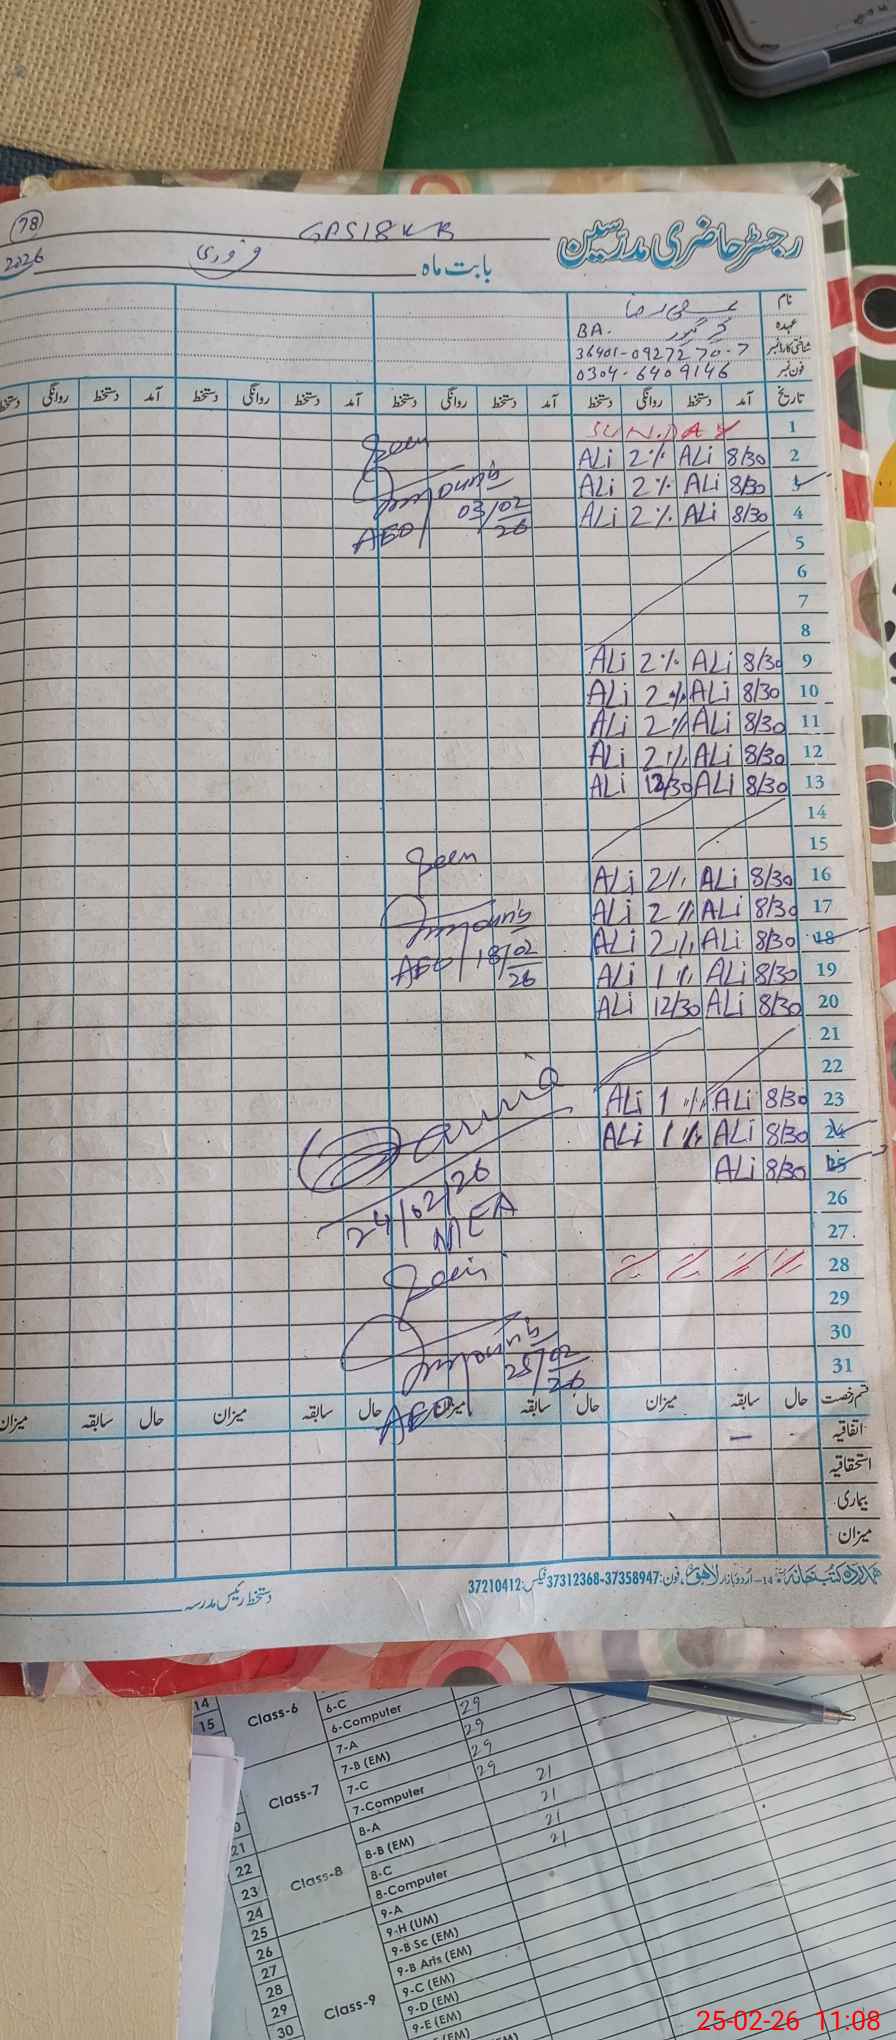 78
GPS 18 KB
رجسٹر حاضری مدرسین
2026
فروری
بابت ماہ
نام
علی رضا
عہدہ
BA.
شناختی کارڈ نمبر 36401-0927270-7
فون نمبر 0304-6409146
تاریخ آمد دستخط روانگی دستخط آمد دستخط روانگی دستخط آمد دستخط روانگی دستخط آمد دستخط روانگی دستخط
1 SUNDAY
2 8/30 ALi 2% ALi
3 8/30 ALi 2% ALi
4 8/30 ALi 2% ALi
Seen
AEO 03/02/26
5
6
7
8
9 8/30 ALi 2% ALi
10 8/30 ALi 2% ALi
11 8/30 ALi 2% ALi
12 8/30 ALi 2% ALi
13 8/30 ALi 12/30 ALi
14
15
16 8/30 ALi 2% ALi
17 8/30 ALi 2% ALi
18 8/30 ALi 2% ALi
19 8/30 ALi 1% ALi
20 8/30 ALi 12/30 ALi
Seen
AEO 18/02/26
21
22
23 8/30 ALi 1% ALi
24 8/30 ALi 1% ALi
25 8/30 ALi
24/02/26
MEA
26
27
28
29
30
31
Seen
25/02/26
AEO
قسم رخصت حال سابقہ میزان حال سابقہ میزان حال سابقہ میزان حال سابقہ میزان
اتفاقیہ
استحقاقیہ
بیماری
میزان
ہمدرد کتب خانہ 14-اردو بازار لاہور، فون: 37358947-37312368 فیکس: 37210412
دستخط رئیس مدرسہ
14 6-C
15 Class-6 6-Computer 29
7-A 29
7-B (EM) 29
Class-7 7-C 29
7-Computer 21
21 8-A 21
22 8-B (EM) 21
23 Class-8 8-C 21
24 8-Computer
25 9-A
26 9-H (UM)
27 9-B Sc (EM)
28 9-B Arts (EM)
29 Class-9 9-C (EM)
30 9-D (EM)
9-E (EM)
25-02-26 11:08